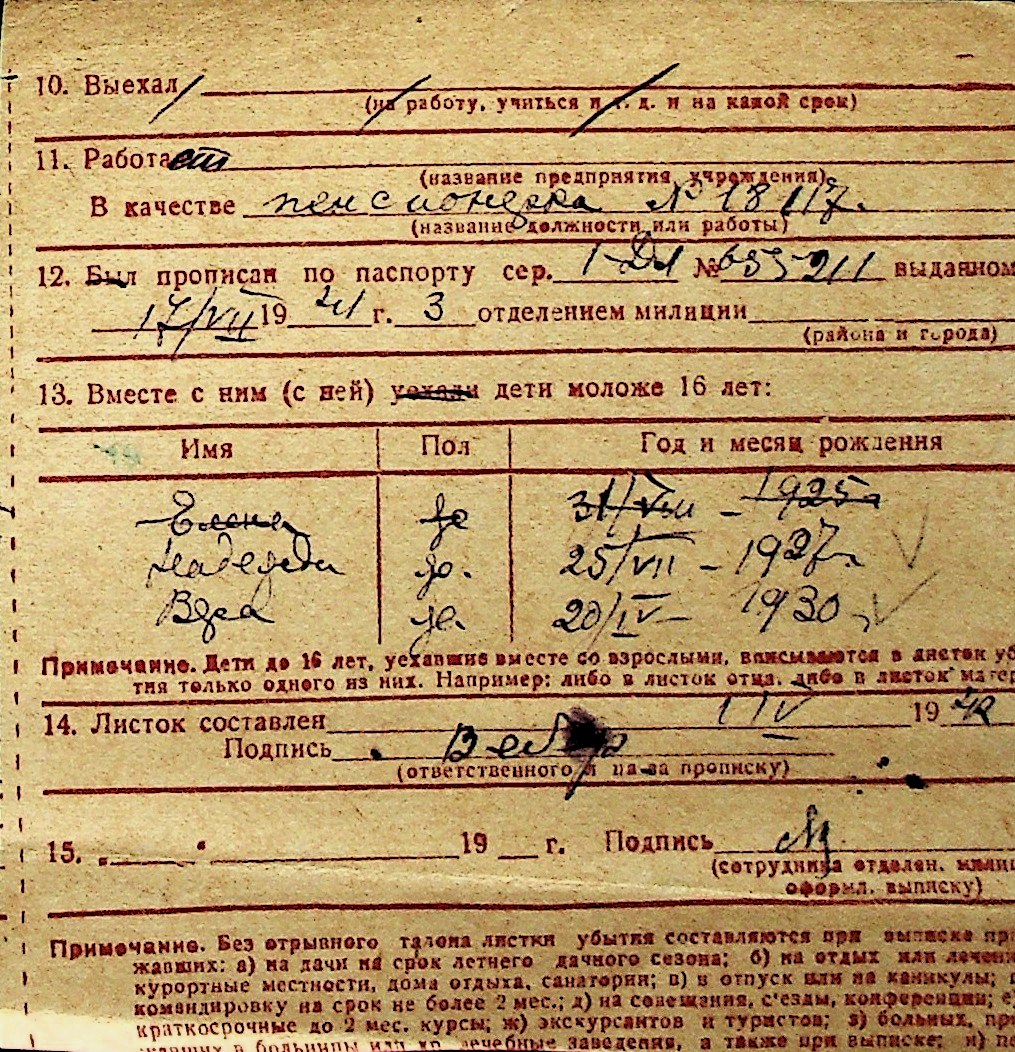 10. Выехал
(на работу, учиться и т. д. и на какой срок)
11. Работает
(название предприятия, учреждения)
В качестве пенсионерка № 18117.
(название должности или работы)
12. Был прописан по паспорту сер. № 655211 выданном
17/VII 19 41 г. 3 отделением милиции
(района и города)
13. Вместе с ним (с ней) уехали дети моложе 16 лет:
Имя Пол Год и месяц рождения
Елена ж 31/VIII – 1925
Надежда ж. 25/VII – 1927
Вера ж. 20/IV – 1930
Примечание. Дети до 16 лет, уехавшие вместе со взрослыми, вписываются в листок убы
тия только одного из них. Например: либо в листок отца, либо в листок матер
14. Листок составлен 1 IV 19 42
Подпись
(ответственного за прописку)
15. „ “ 19 г. Подпись
(сотрудника отделен. мили
оформл. выписку)
Примечание. Без отрывного талона листки убытия составляются при выписке
жавших: а) на дачи на срок летнего дачного сезона; б) на отдых или лечен
курортные местности, дома отдыха, санатории; в) в отпуск или на каникулы;
командировку на срок не более 2 мес.; д) на совещания, с'езды, конференции; е)
краткосрочные до 2 мес. курсы; ж) экскурсантов и туристов; з) больных,
в больницы или др. лечебные заведения, а также при выписке; и)